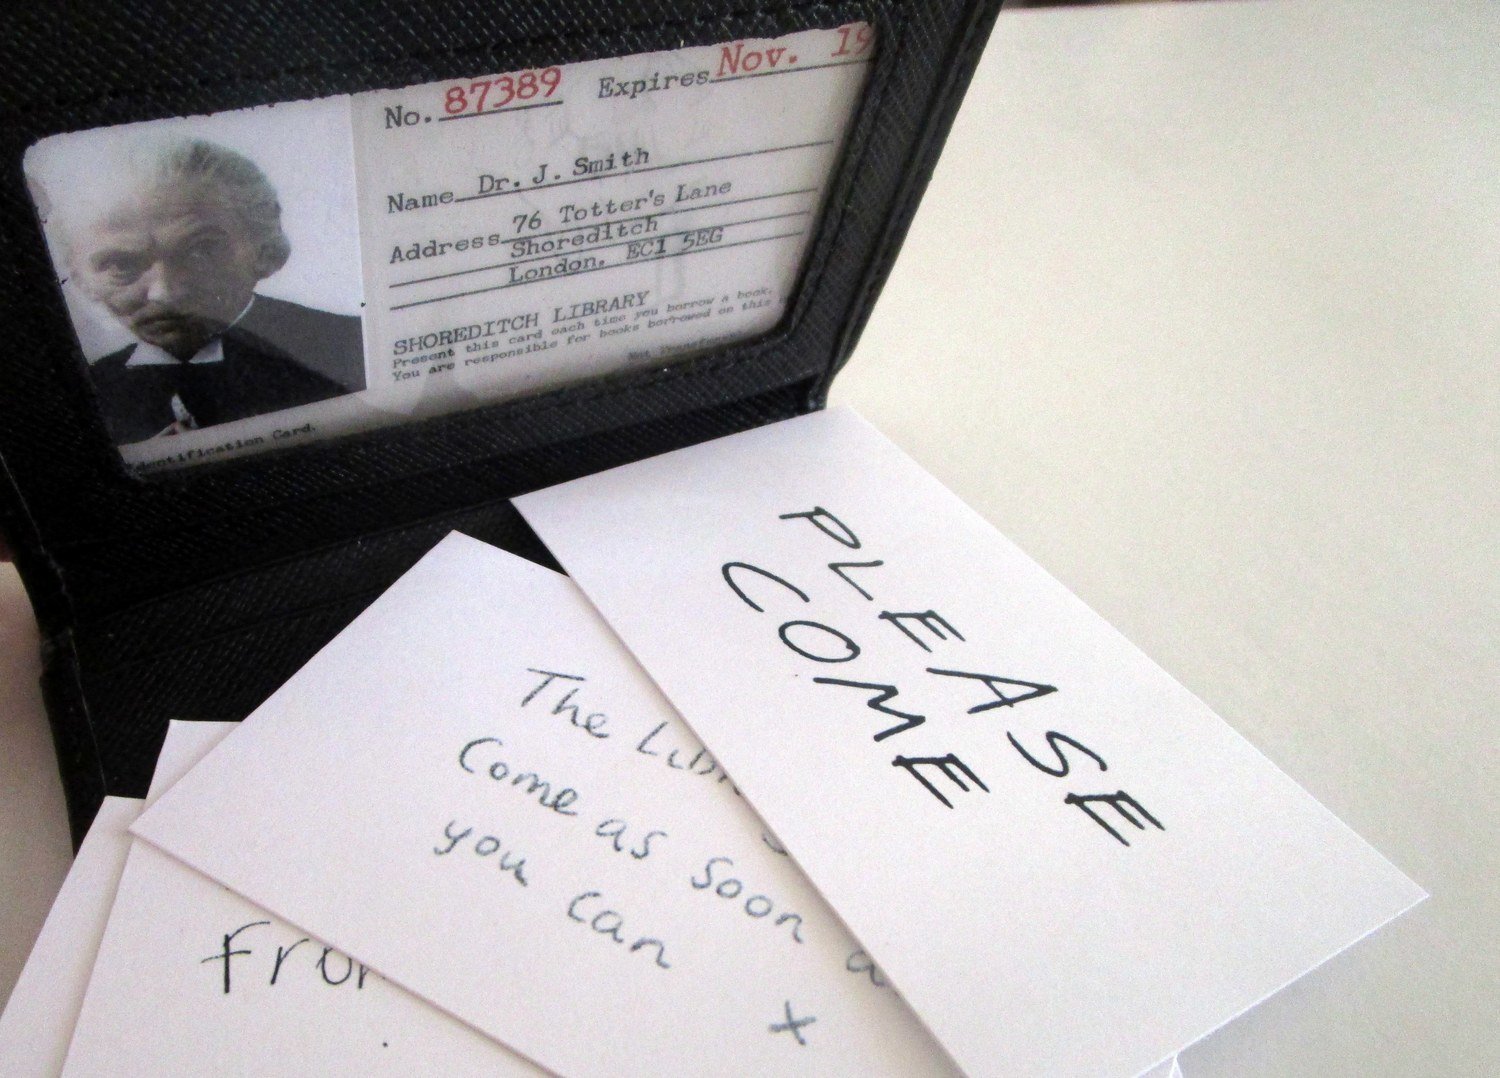 No. 87389 Expires Nov. 19
Name Dr. J. Smith
Address 76 Totter's Lane
Shoreditch
London. EC1 5EG
SHOREDITCH LIBRARY
Present this card each time you borrow a book.
You are responsible for books borrowed on this
Not
Identification Card.
PLEASE
COME
The
Come as soon
you can
x